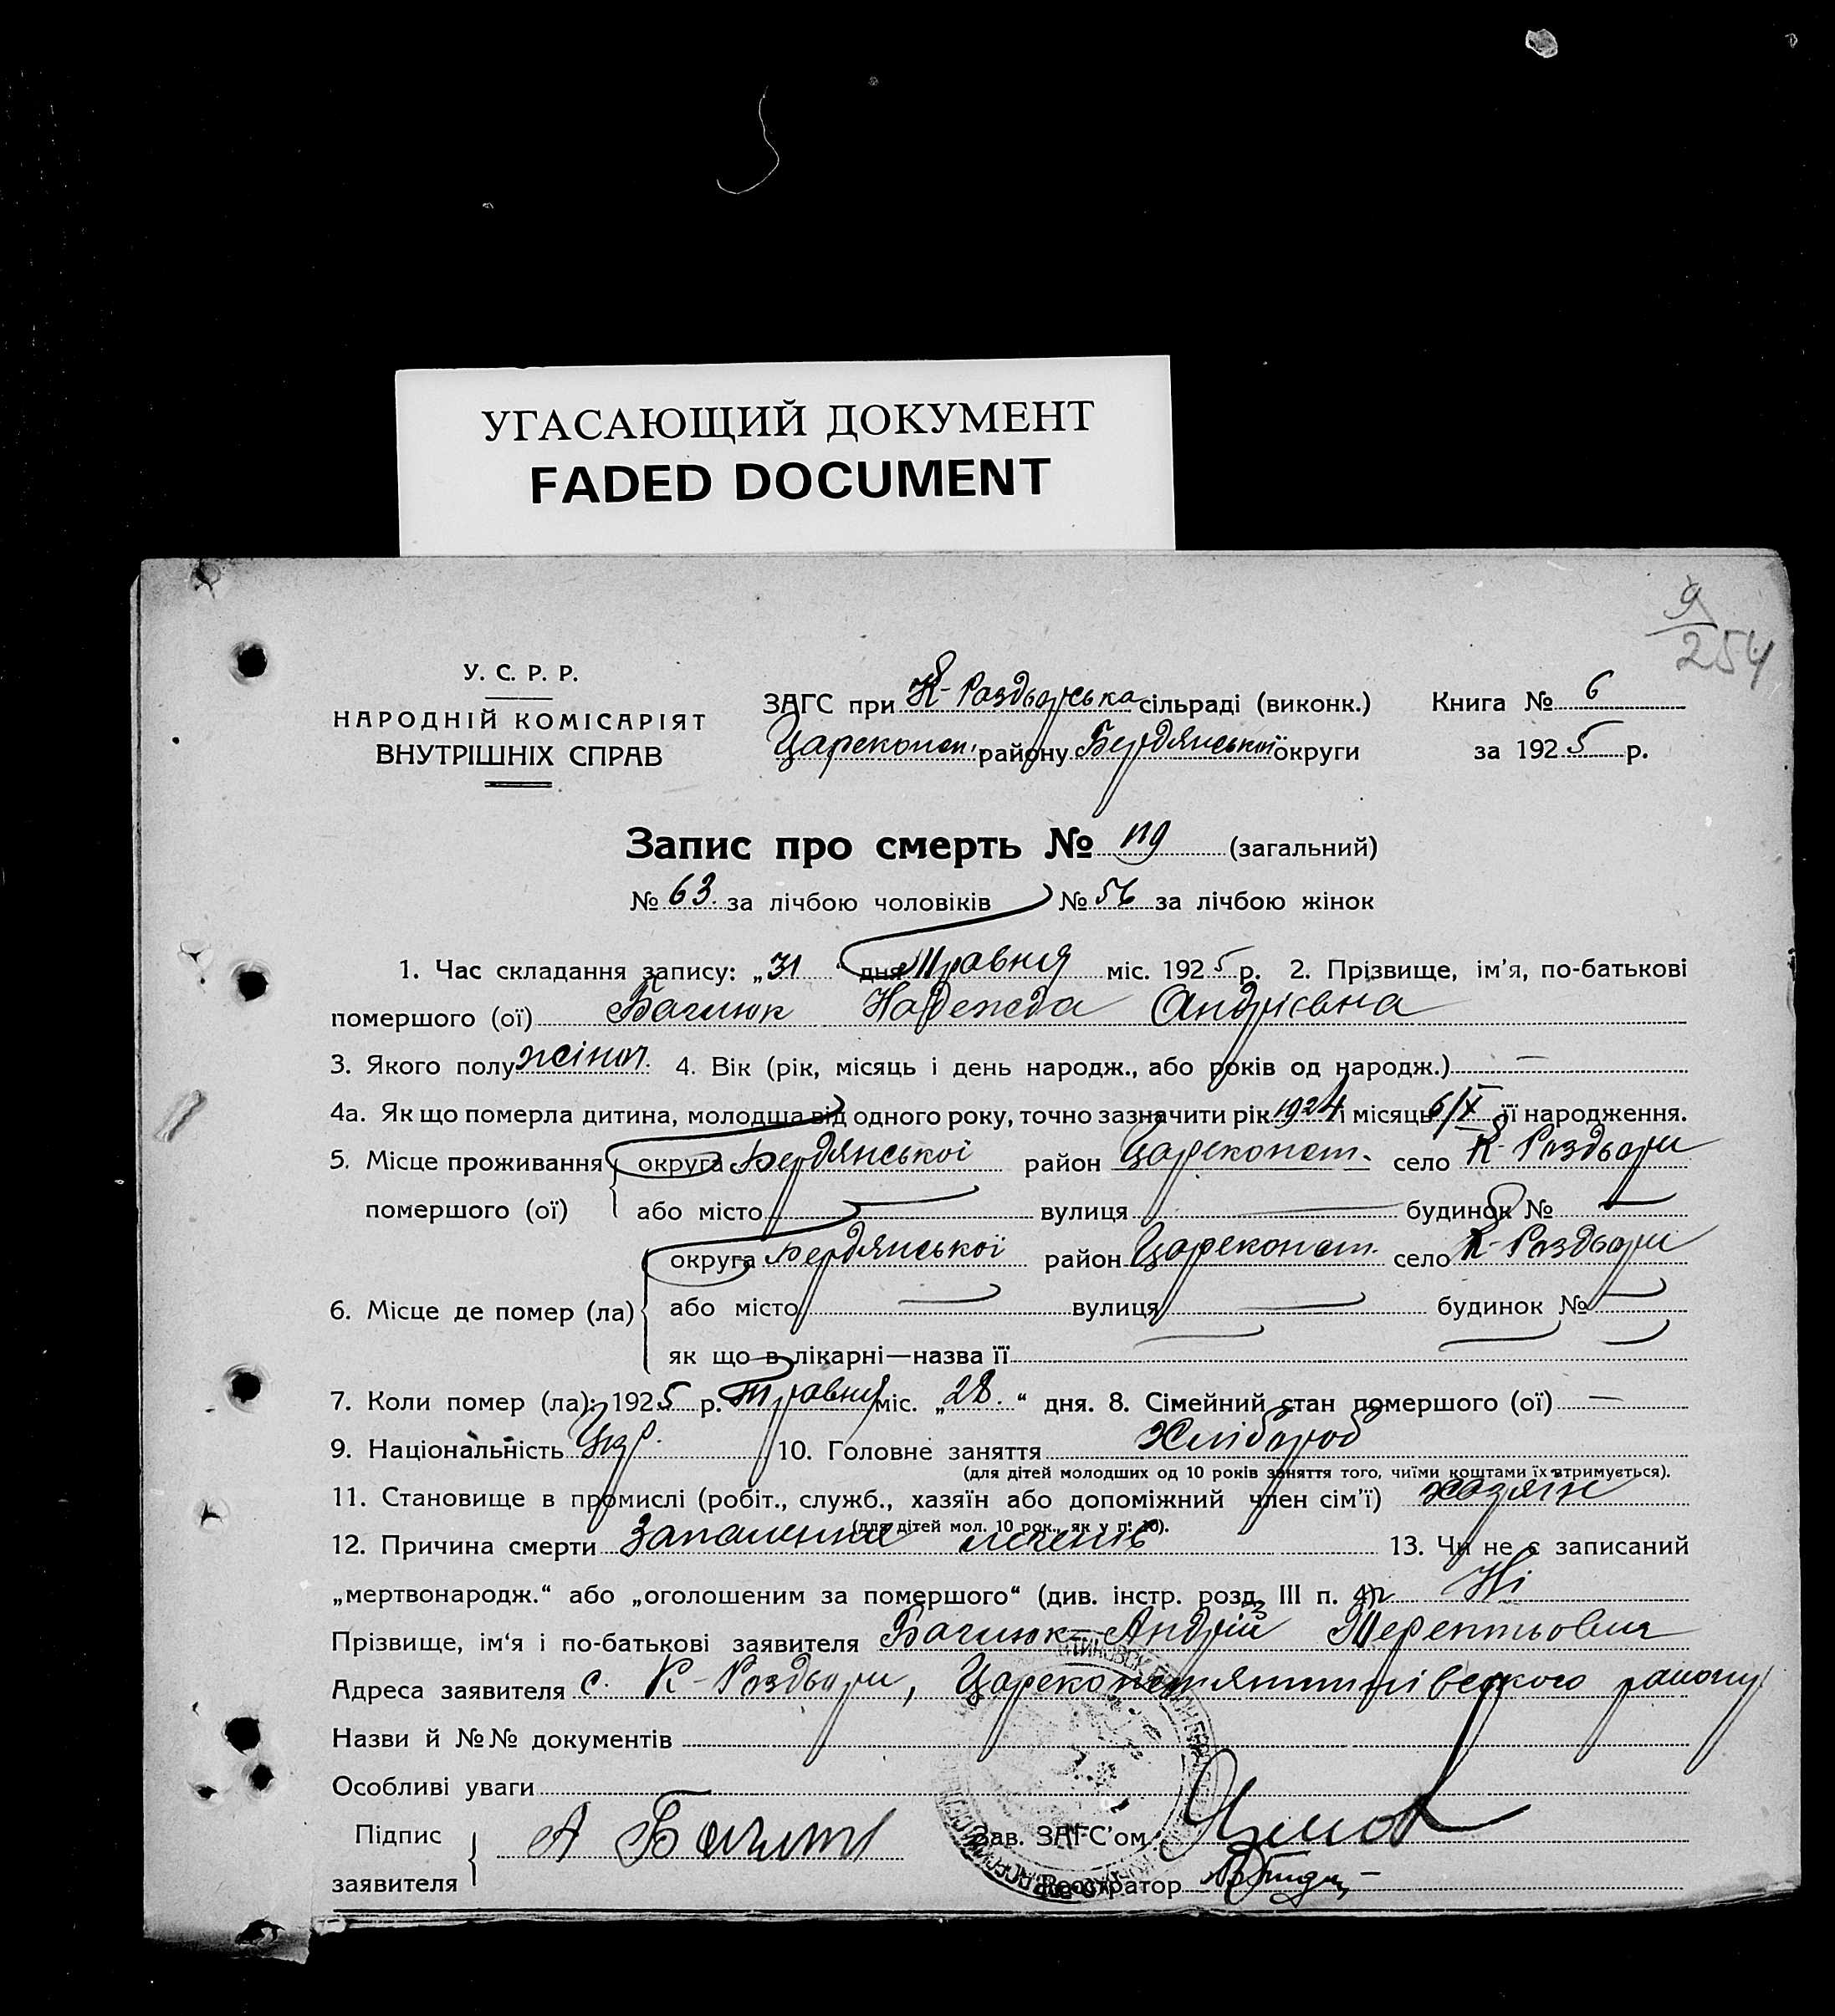 УГАСАЮЩИЙ ДОКУМЕНТ
FADED DOCUMENT
9
254
У. С. Р. Р.
НАРОДНІЙ КОМІСАРІЯТ
ВНУТРІШНІХ СПРАВ
ЗАГС при К-Роздорська сільраді (виконк.) Книга № 6
Цареконст. району Бердянської округи за 1925 р.
Запис про смерть № 119 (загальний)
№ 63. за лічбою чоловіків № 56 за лічбою жінок
1. Час складання запису: „31“ дня Травня міс. 1925 р. 2. Прізвище, ім’я, по-батькові
помершого (ої) Баглюк Надежда Андрієвна
3. Якого полу жіноч. 4. Вік (рік, місяць і день народж., або років од народж.) —
4а. Як що померла дитина, молодша від одного року, точно зазначити рік 1924 і місяць 6/X її народження.
5. Місце проживання округа Бердянської район Цареконст. село К-Роздори
помершого (ої) або місто — вулиця — будинок № —
округа Бердянської район Цареконст. село К-Роздори
6. Місце де помер (ла) або місто — вулиця — будинок № —
як що в лікарні—назва її — — —
7. Коли помер (ла): 1925 р. Травня міс. „28.“ дня. 8. Сімейний стан помершого (ої) —
9. Національність Укр. 10. Головне заняття Хлібороб
(для дітей молодших од 10 років заняття того, чиїми коштами їх втримується).
11. Становище в промислі (робіт., служб., хазяїн або допоміжний член сім’ї) хазяїн
(для дітей мол. 10 рок., як у п. 10).
12. Причина смерти Запалення легенів 13. Чи не є записаний
„мертвонародж.“ або „оголошеним за помершого“ (див. інстр. розд. III п. 4) Ні
Прізвище, ім‘я і по-батькові заявителя Баглюк Андрій Терентьович
Адреса заявителя с. К-Роздори, Цареконстянтинівского району
Назви й №№ документів
Особливі уваги
Підпис А Баглюк Зав. ЗАГС’ом
заявителя Реєстратор